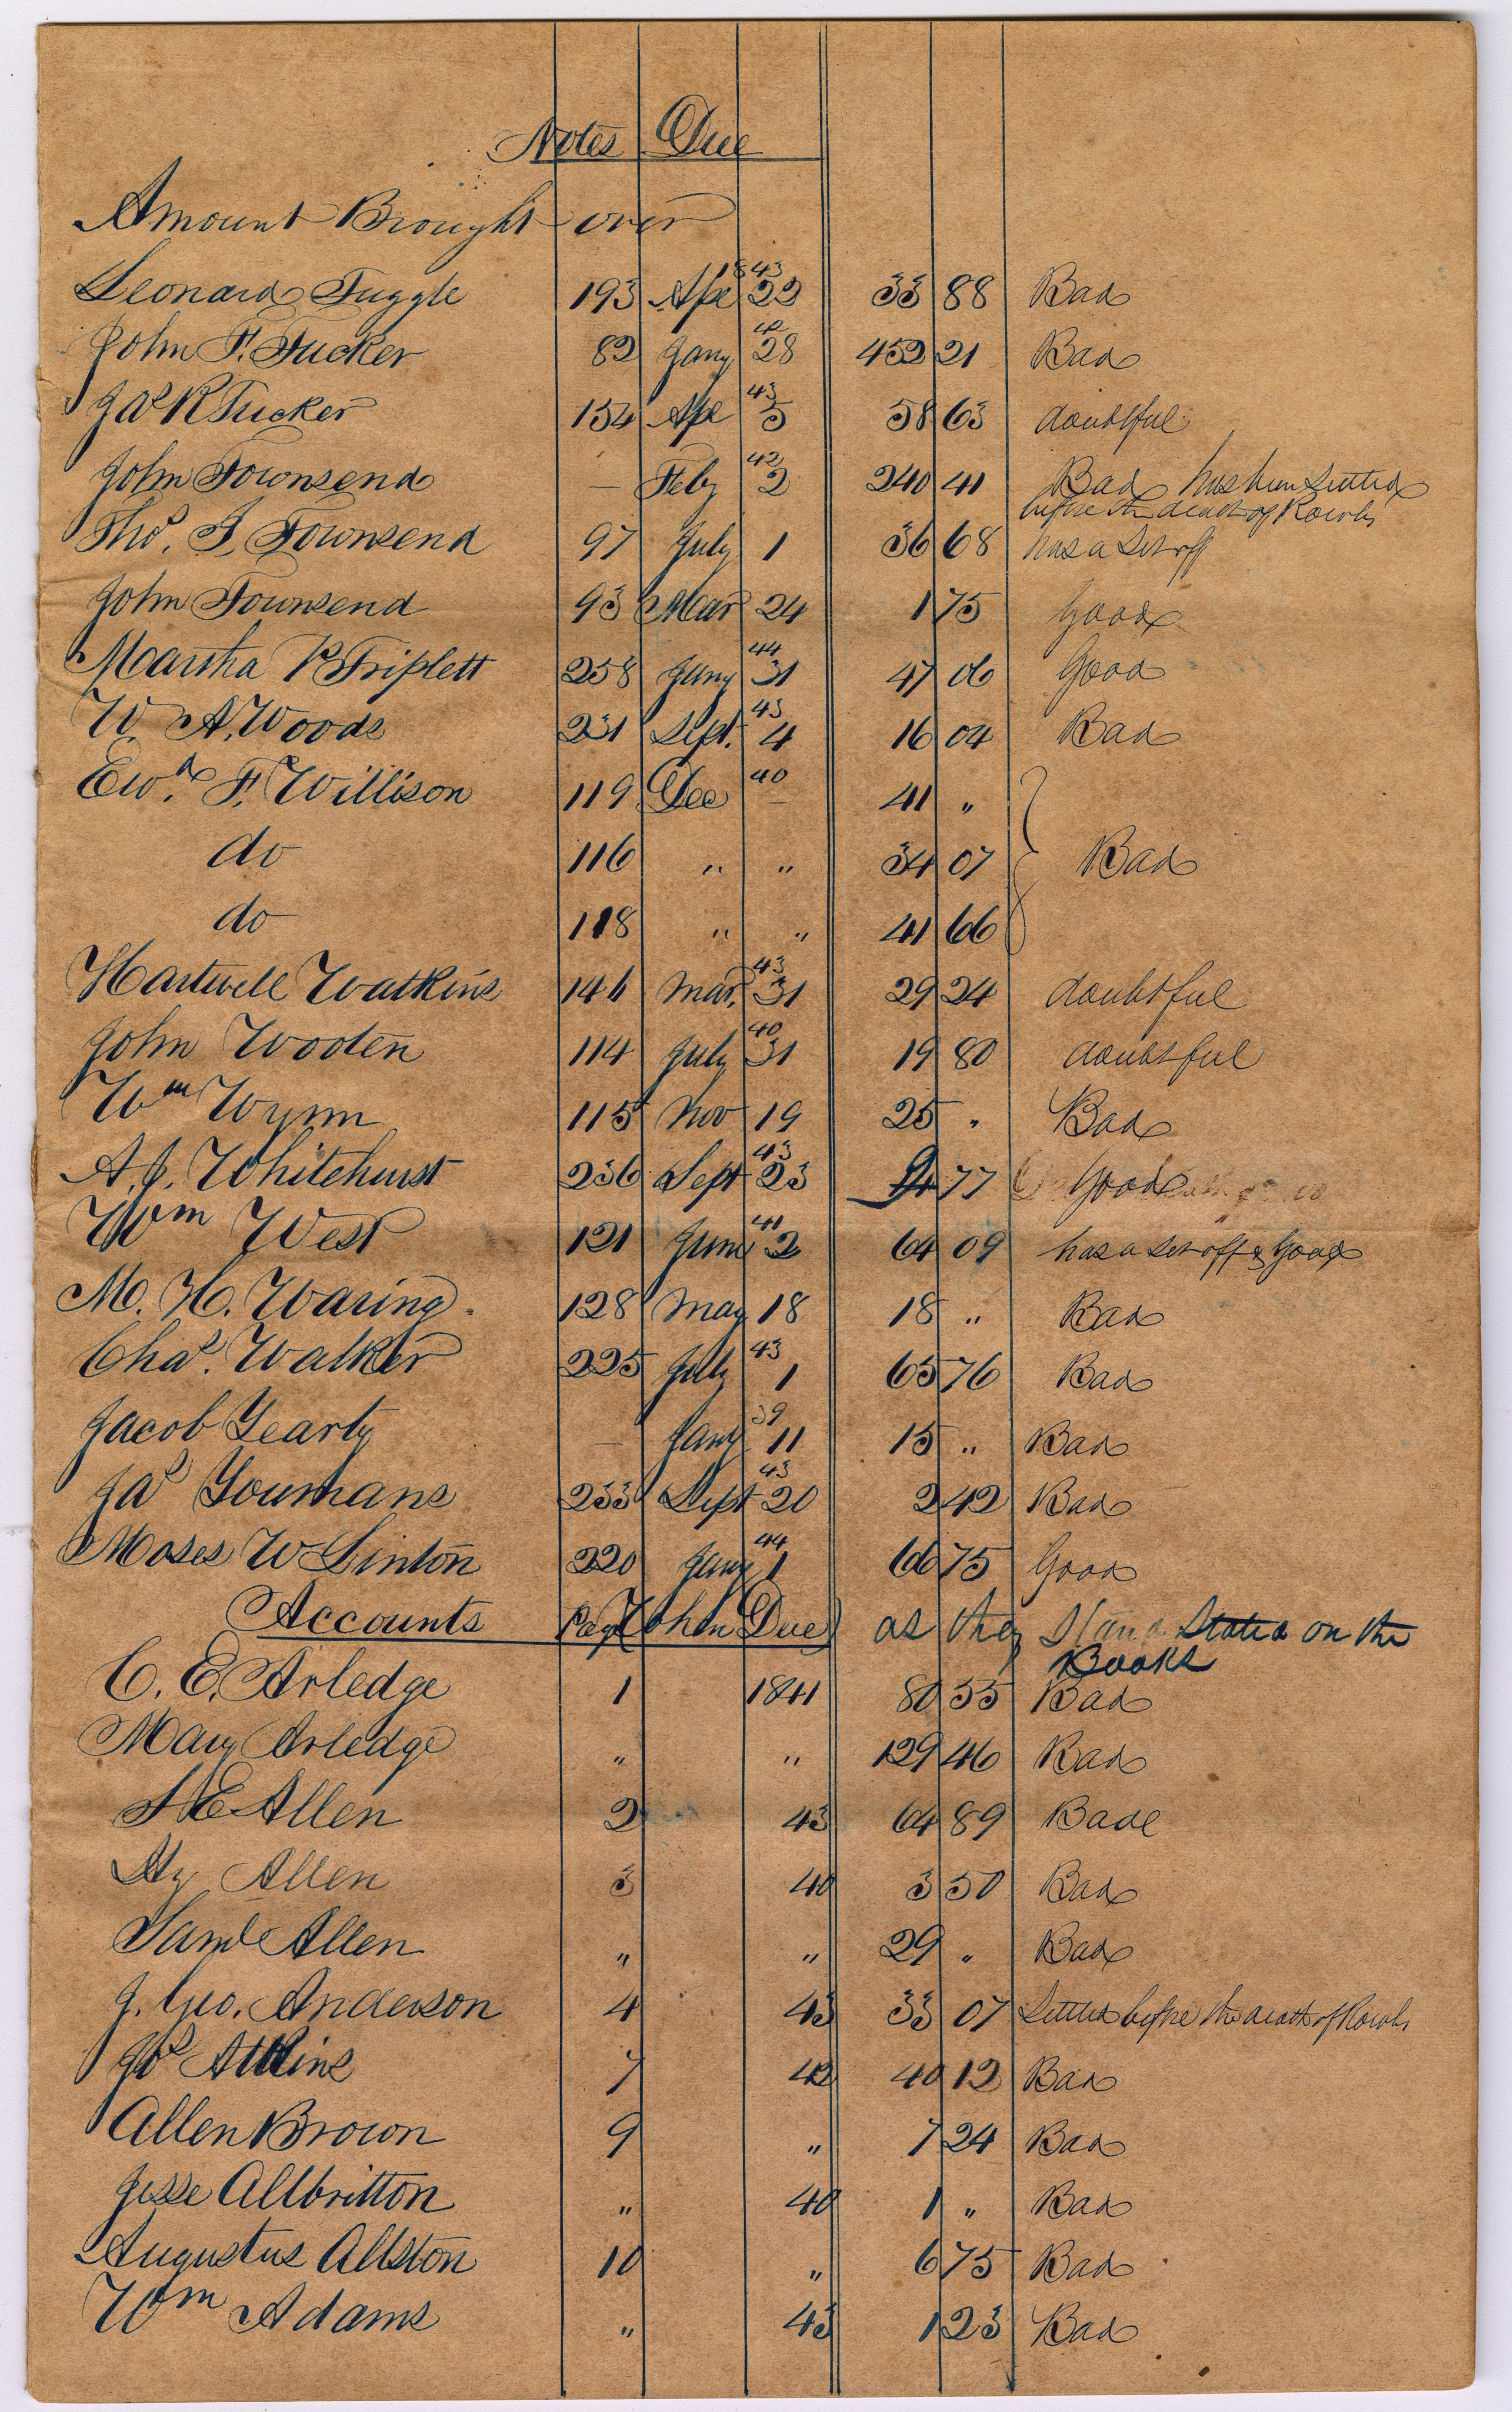 Notes Due
Amount Brought over
Leonard Tuggle 193 Apl 1843 22 33 88 Bad
John F. Tucker 82 Jany 42 28 452 21 Bad
Jas R Tucker 154 Apl 43 5 58 63 doubtful
John Townsend — Feby 42 2 240 41 Bad has been settled
before the death of Rowls
Thos. J. Townsend 97 July 1 36 68 has a set off
John Townsend 93 Mar 24 1 75 Good
Martha R Triplett 258 Jany 44 31 47 06 Good
W. A. Woods 231 Sept. 43 4 16 04 Bad
Ewd. F. Willison 119 Dec 40 – 41 "
do 116 " " 34 07 Bad
do 118 " " 41 66
Hartwell Watkins 146 Mar. 43 31 29 24 doubtful
John Wooten 114 July 40 31 19 80 doubtful
Wm Wynn 115 Nov 19 25 " Bad
A. J. Whitehurst 236 Sept 43 23 77 Good
Wm West 121 June 41 2 64 09 has a set off & Good
M. H. Waring 128 May 18 18 " Bad
Chas. Walker 225 July 43 1 65 76 Bad
Jacob Yearty — Jany 39 11 15 " Bad
Jas Youmans 233 Sept 43 20 2 42 Bad
Moses W Linton 220 Jany 44 1 66 75 Good
Accounts Page When Due as they Stand Stated on the
Books
C. E. Arledge 1 1841 80 55 Bad
Mary Arledge " " 129 46 Bad
S E Allen 2 43 64 89 Bad
Hy Allen 3 40 3 50 Bad
Saml Allen " " 29 " Bad
J. Geo. Anderson 4 43 33 07 Settled before the death of Rowls
Jos Atkins 7 42 40 12 Bad
Allen Brown 9 " 7 24 Bad
Jesse Allbritton " 40 1 " Bad
Augustus Allston 10 " 6 75 Bad
Wm Adams " 43 1 23 Bad